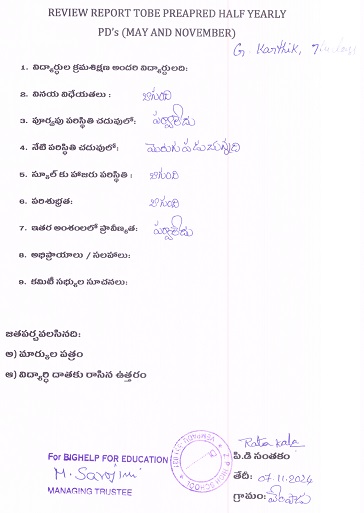 REVIEW REPORT TOBE PREAPRED HALF YEARLY
PD's (MAY AND NOVEMBER)
G Karthik,
1. విద్యార్థుల క్రమశిక్షణ అందరి విద్యార్థులది:
2. వినయ విధేయతలు : బాగుంది
3. పూర్వపు పరిస్థితి చదువులో: పర్వాలేదు
4. నేటి పరిస్థితి చదువులో: మెరుగు పడుచున్నది
5. స్కూల్ కు హాజరు పరిస్థితి : బాగుంది
6. పరిశుభ్రత: బాగుంది
7. ఇతర అంశంలలో ప్రావీణ్యత: పర్వాలేదు
8. అభిప్రాయాలు / సలహాలు:
9. కమిటీ సభ్యుల సూచనలు:
జతపర్చవలసినది:
అ) మార్కుల పత్రం
ఆ) విద్యార్థి దాతకు రాసిన ఉత్తరం
For BIGHELP FOR EDUCATION
M. Sarojini
MANAGING TRUSTEE
Z P HIGH SCHOOL
Ratna Kala
పి.డి సంతకం
తేదీ: 07.11.2024
గ్రామం: వేంపాడు